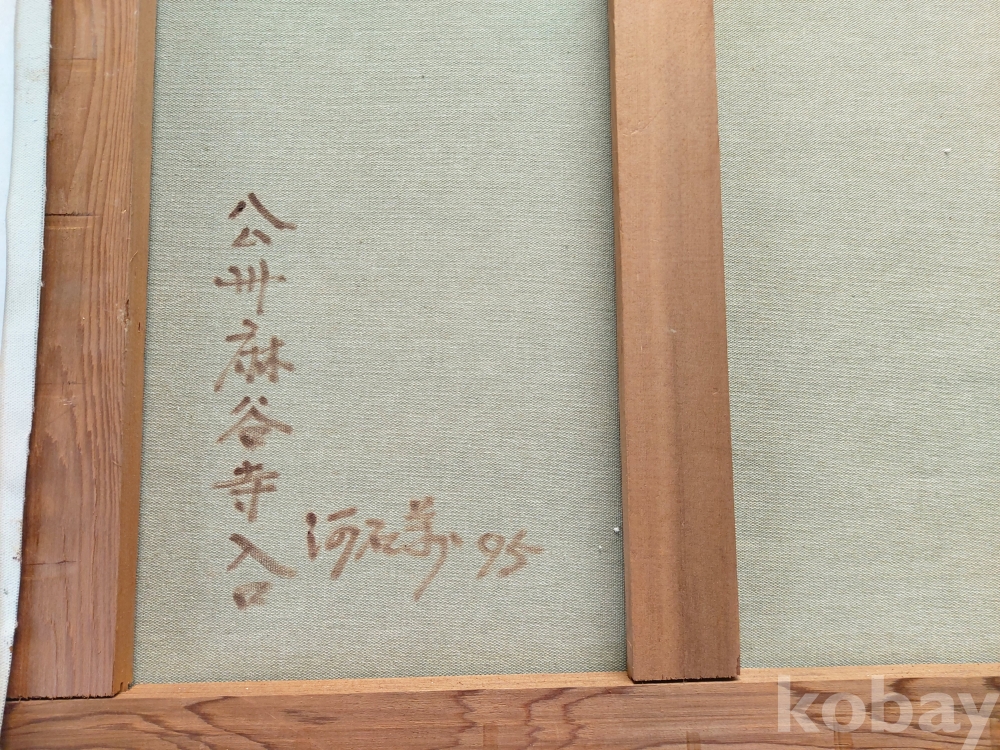 公州麻谷寺入口
河石 95
kobay